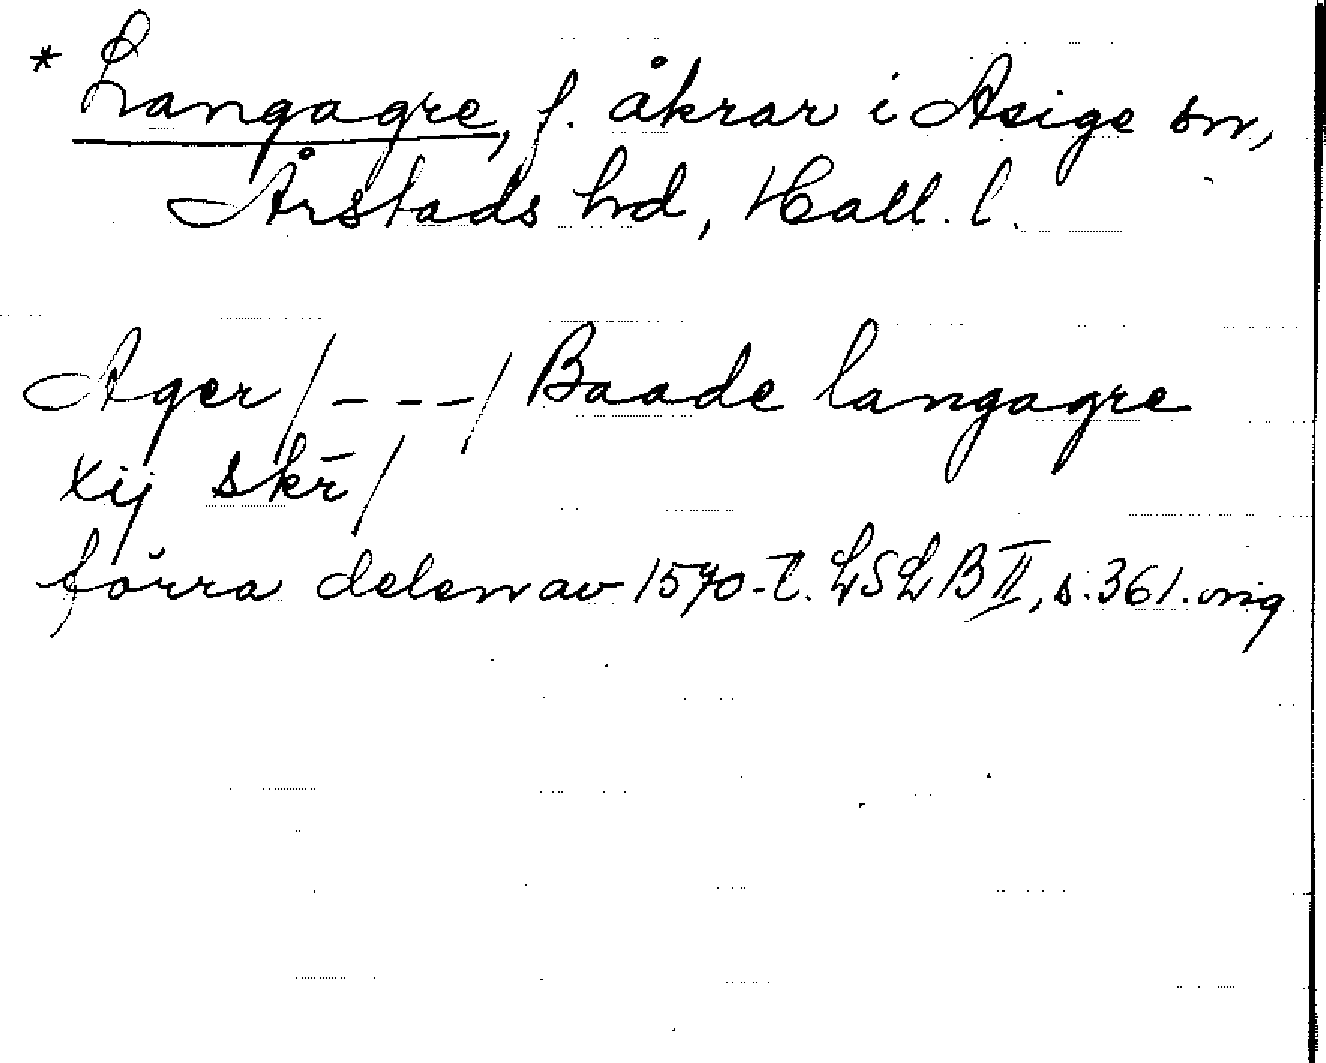 * Langagre, f. åkrar i Asige sn,
Årstads hd, Hall. l.
Ager/---/Baade langagre
xij skr̄/
förra delen av 1570-t. LSLB II, s. 361. orig